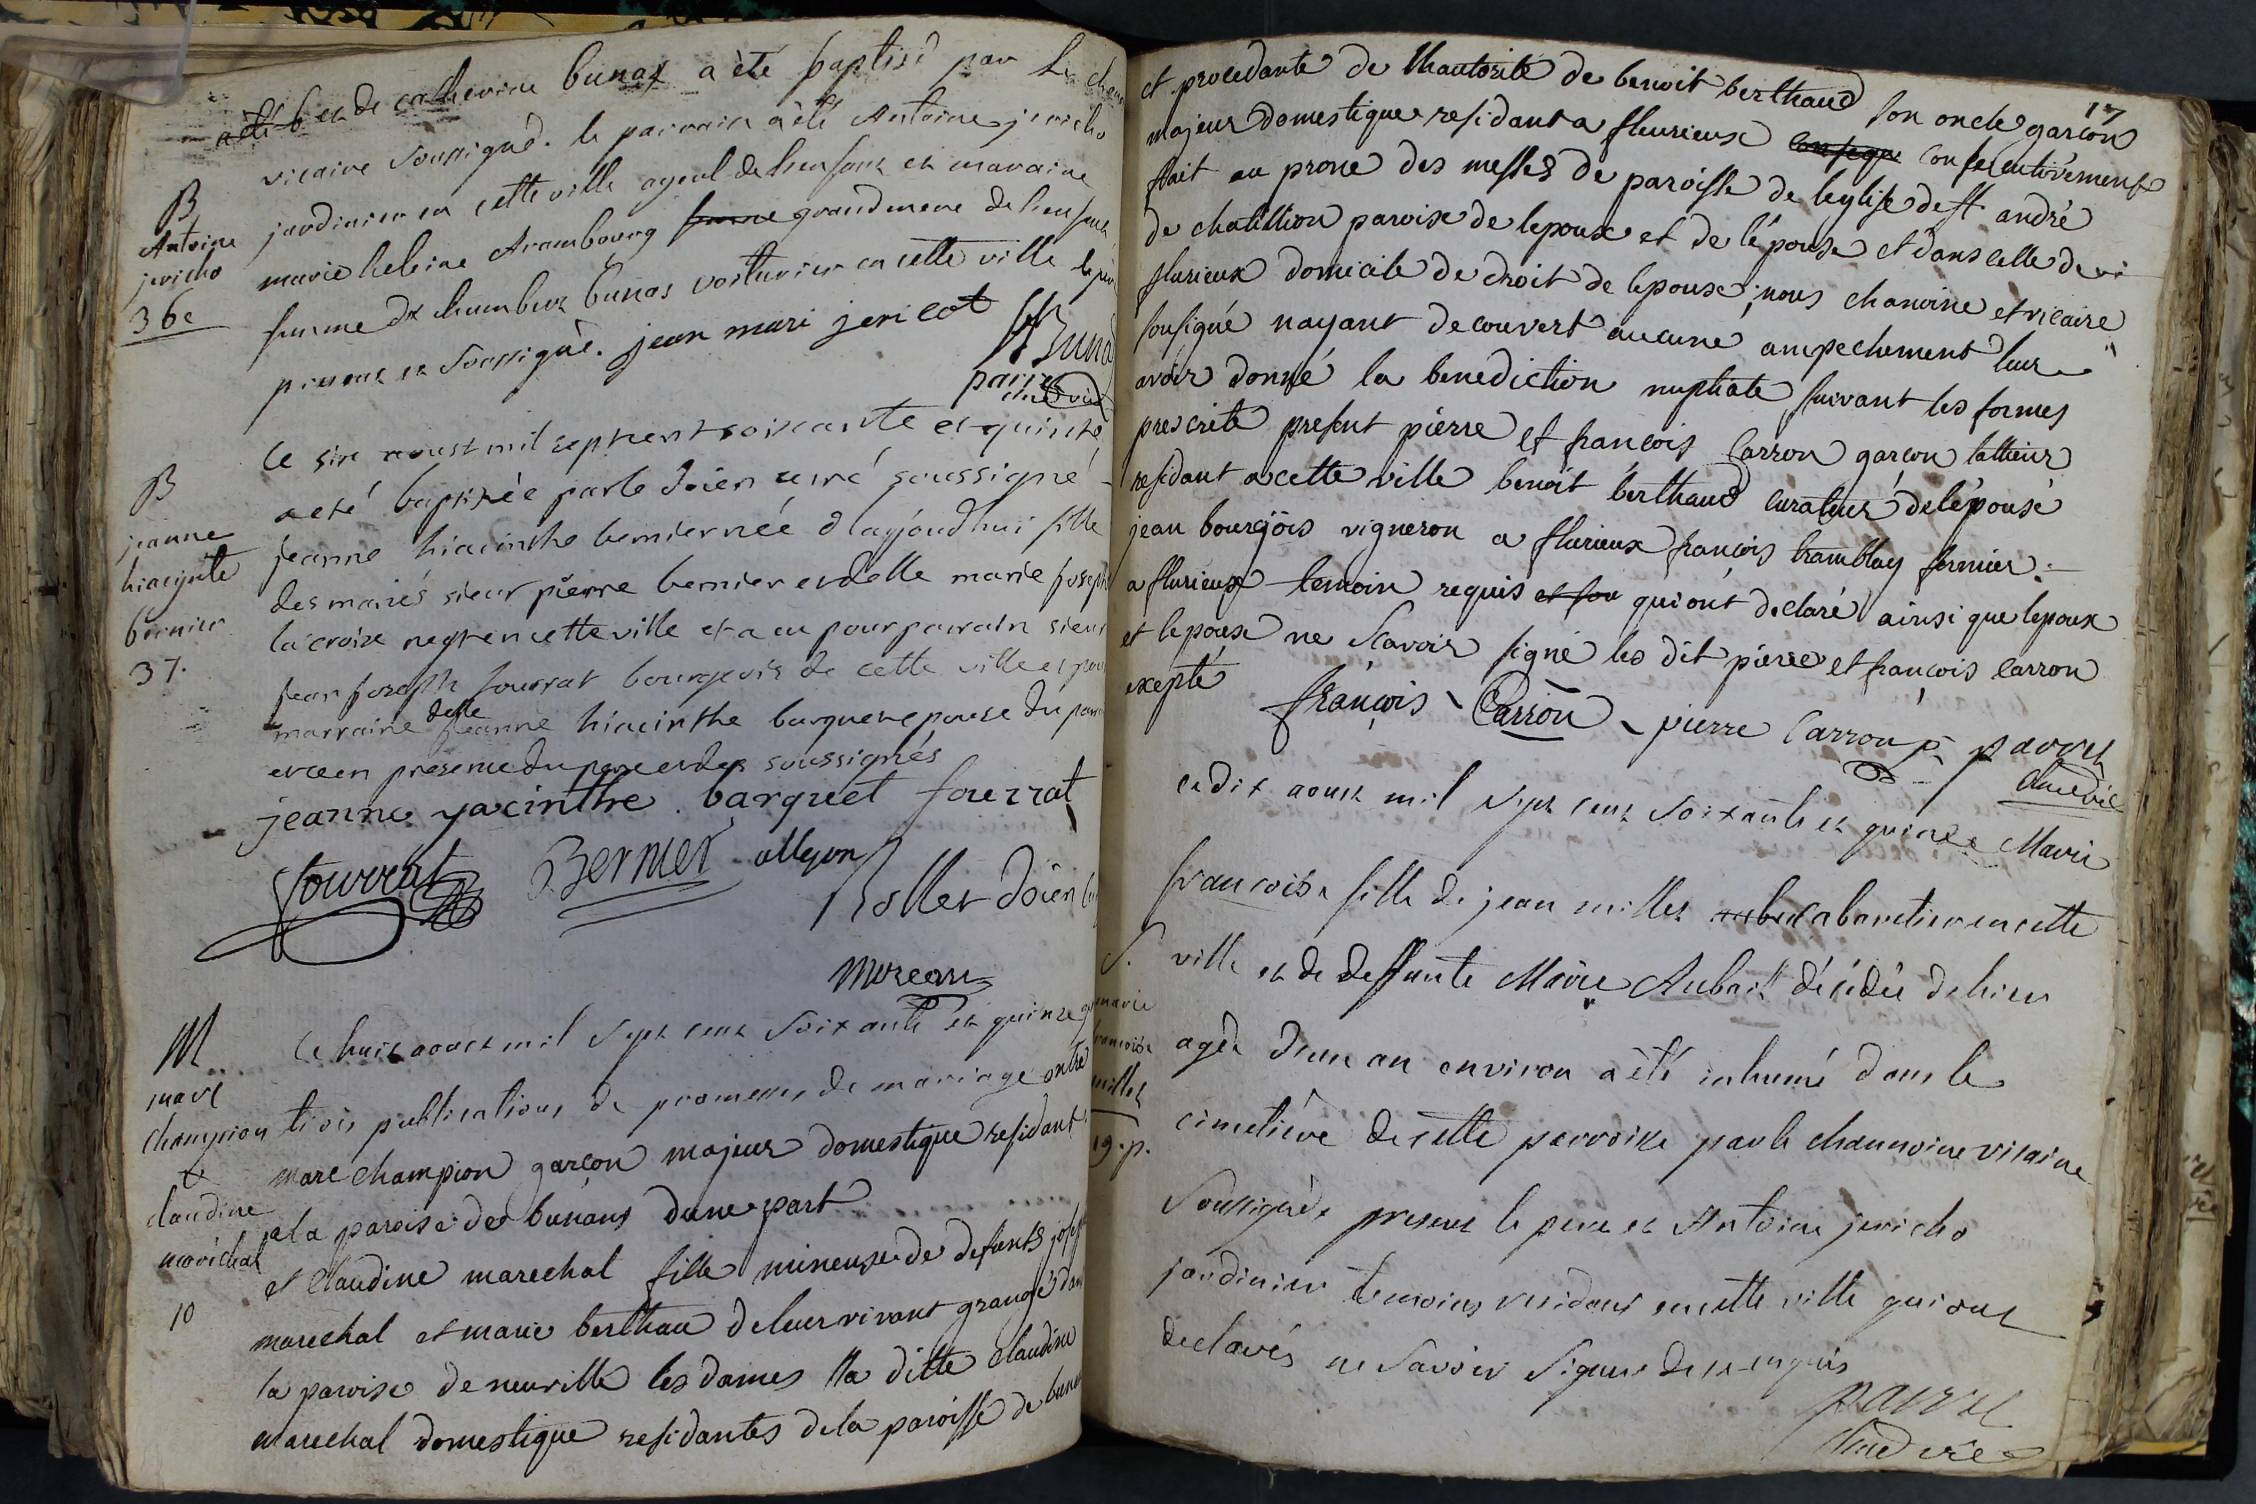 et de catherine bunaz a èté baptisé par le chan
vicaire soussigné. le parrain a èté Antoine jericho
jardinier en cette ville ayeul de lenfant et maraine
marie heleine Arambourg femme grandmere de lenfant
femme de humbert bunas voiturier en cette ville le pere
present et soussigné. jean mari jericot
Buna
parr
B
Antoine
jericho
36e
Ce sire aoust mil septcent soixante et quinze
a eté baptisée par le doien curé soussigné
jeanne hiacinthe bernier née d'aujoud'hui fille
des mariés sieur pierre bernier et delle marie joseph
lacroix negt en cette ville et a eu pour parrain sieur
jean joseph fourrat bourgeois de cette ville et pour
marraine delle jeanne hiacinthe barquet epouse du parr
et ce en presence du pere et des soussignés
jeanne yacinthe barquet fourrat
fourrat Bernier allyon
Rollet doien
Moreau
B
jeanne
hiacynte
bernier
37.
Ce huit aoust mil sept cent soixante et quinze
trois publications de promesses de mariage entre
marc champion garçon majeur domestique residant
a la paroise des bunans dune part
et Claudine marechal fille mineuse de defunts joseph
marechal et marie berthau de leur vivant grangé dans
la paroise de neuville les dames lla ditte claudine
marechal domestique residantes dela paroisse de bunan
M
marc
champion
&
claudine
maréchal
10
17
et procedante de lhautorité de benoit berthaud son oncle garçon
majeur domestique residant a fleurieux conseque consecutivement
fait au prone des messes de paroisse de leglise de st andré
de chatillion paroise de lepoux et de lépouse et dans celle de
flurieux domicile de droit de lepouse; nous chanoine et vicaire
sousigné nayant decouvert aucune ampechement leur
avoir donné la benediction nuptiale suivant les formes
prescrite present piérre et francois Carron garcon tallieur
residant a cette ville benoit berthaud curateur de lépouse
jean bourgjois vigneron a flurieux françois tramblay fermier
a flurieux temoin requis et sou qui ont declaré ainsi que lepoux
et lepouse ne scavoir signé les dit pierre et francois carron
excepté
françois Carron pierre Carron parrel
chne vic
Ce dix aoust mil sept cent soixante et quinze Marie
francoise fille de jean millet cabaretier en cette
ville et de deffunte Marie Aubait décédée dehier
agée d'un an environ a èté inhumé dans le
cimetière de cette parroisse par le chanoine vicaire
soussigné present le pere et Antoine jericho
jardinier temoins residans en cette ville qui ont
declarés ne savoir signer de ce enquis
parrel
chne vic
S.
marie
francoise
millet
19. p.